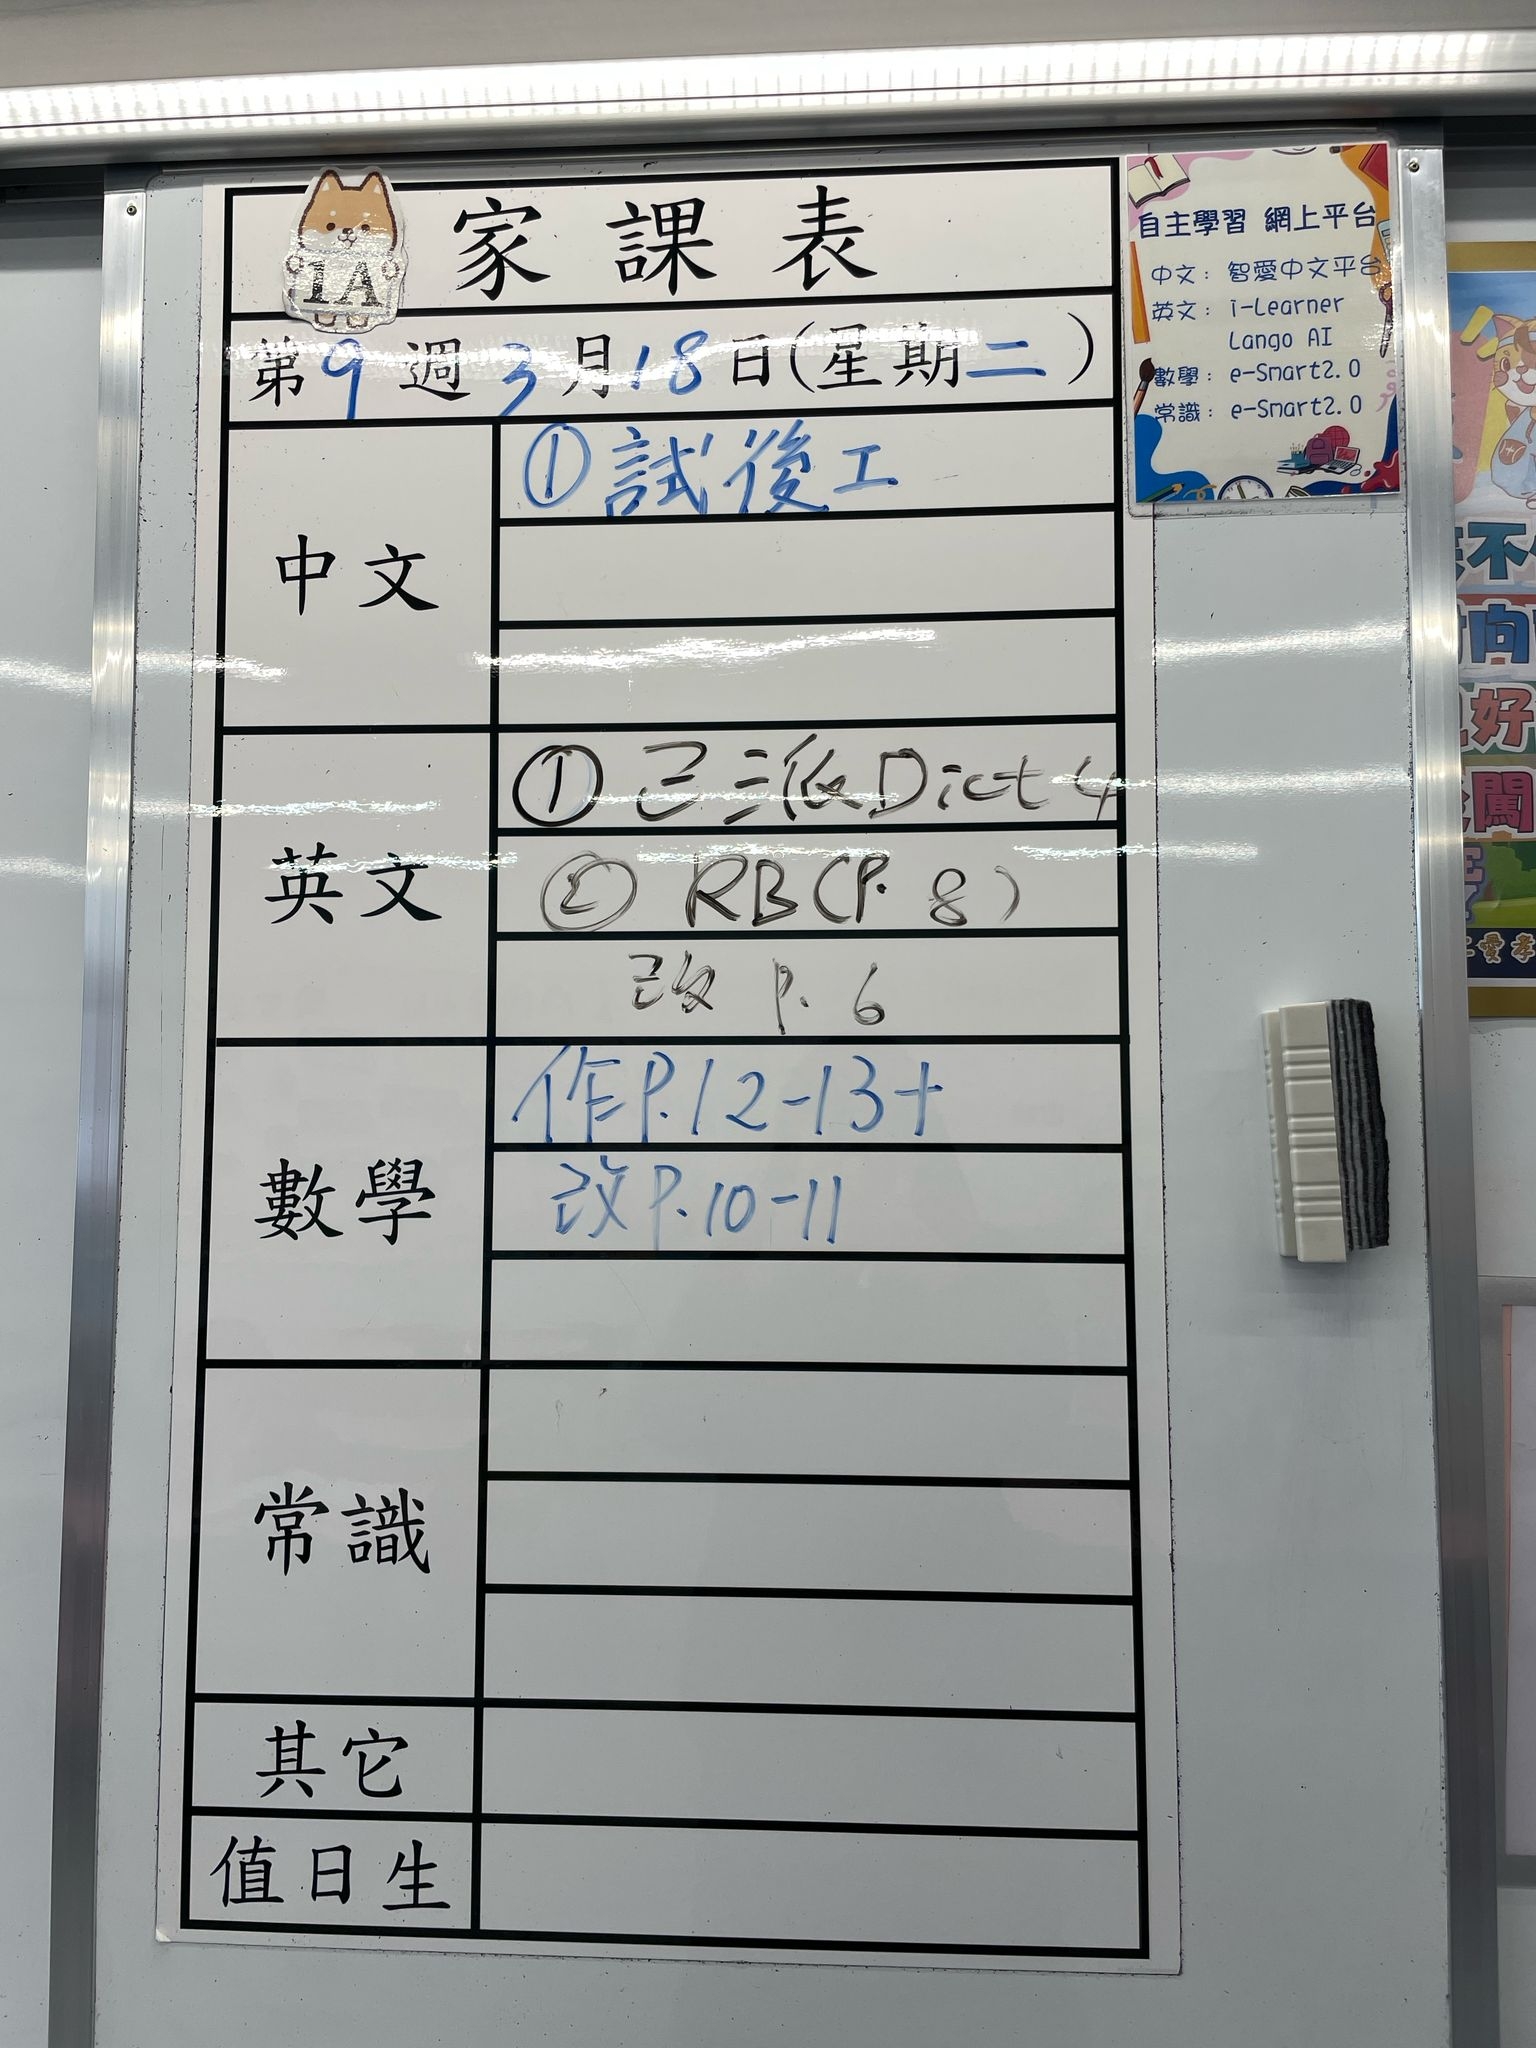 1A
家課表
第9週3月18日(星期二)
中文
①試後工
英文
①已派Dict 4
② RB(P. 8)
改 P. 6
數學
作P.12-13+
改P.10-11
常識
其它
值日生
自主學習 網上平台
中文：智愛中文平台
英文：i-Learner
Lango AI
數學：e-Smart2.0
常識：e-Smart2.0
不
向
好
闖
愛孝